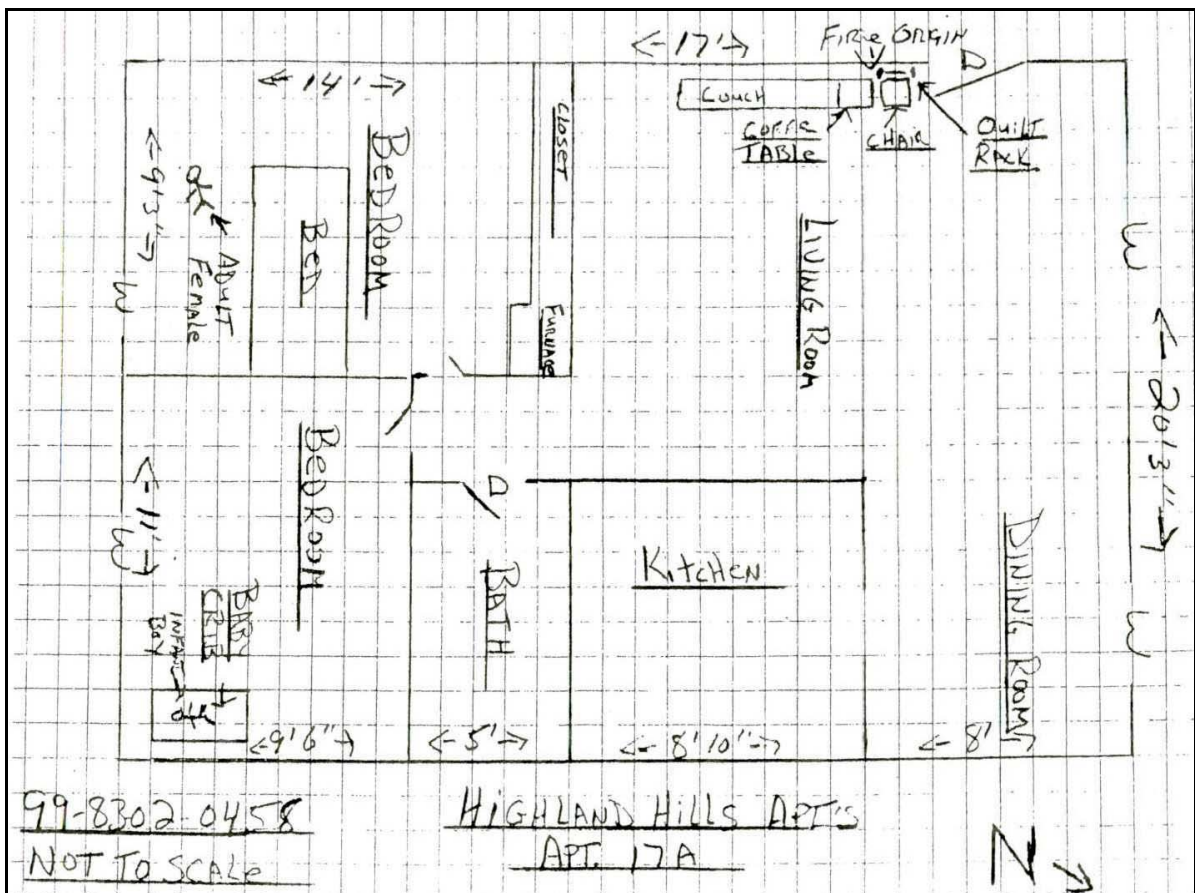 <- 17' ->
FIRE ORIGIN
D
<- 14' ->
COUCH
CLOSET
COFFE
TABLE
CHAIR
QUILT
RACK
<- 9'3" ->
BEDROOM
BED
ADULT
FEMALE
LIVING ROOM
FURNACE
W
W
<- 20'3" ->
BEDROOM
D
<- 11' ->
W
BATH
KITCHEN
DINING ROOM
W
BABY
CRIB
INFANT
BOY
<- 9'6" ->
<- 5' ->
<- 8'10" ->
<- 8' ->
99-8302-0458
NOT TO SCALE
HIGHLAND HILLS APT'S
APT. 17A
N